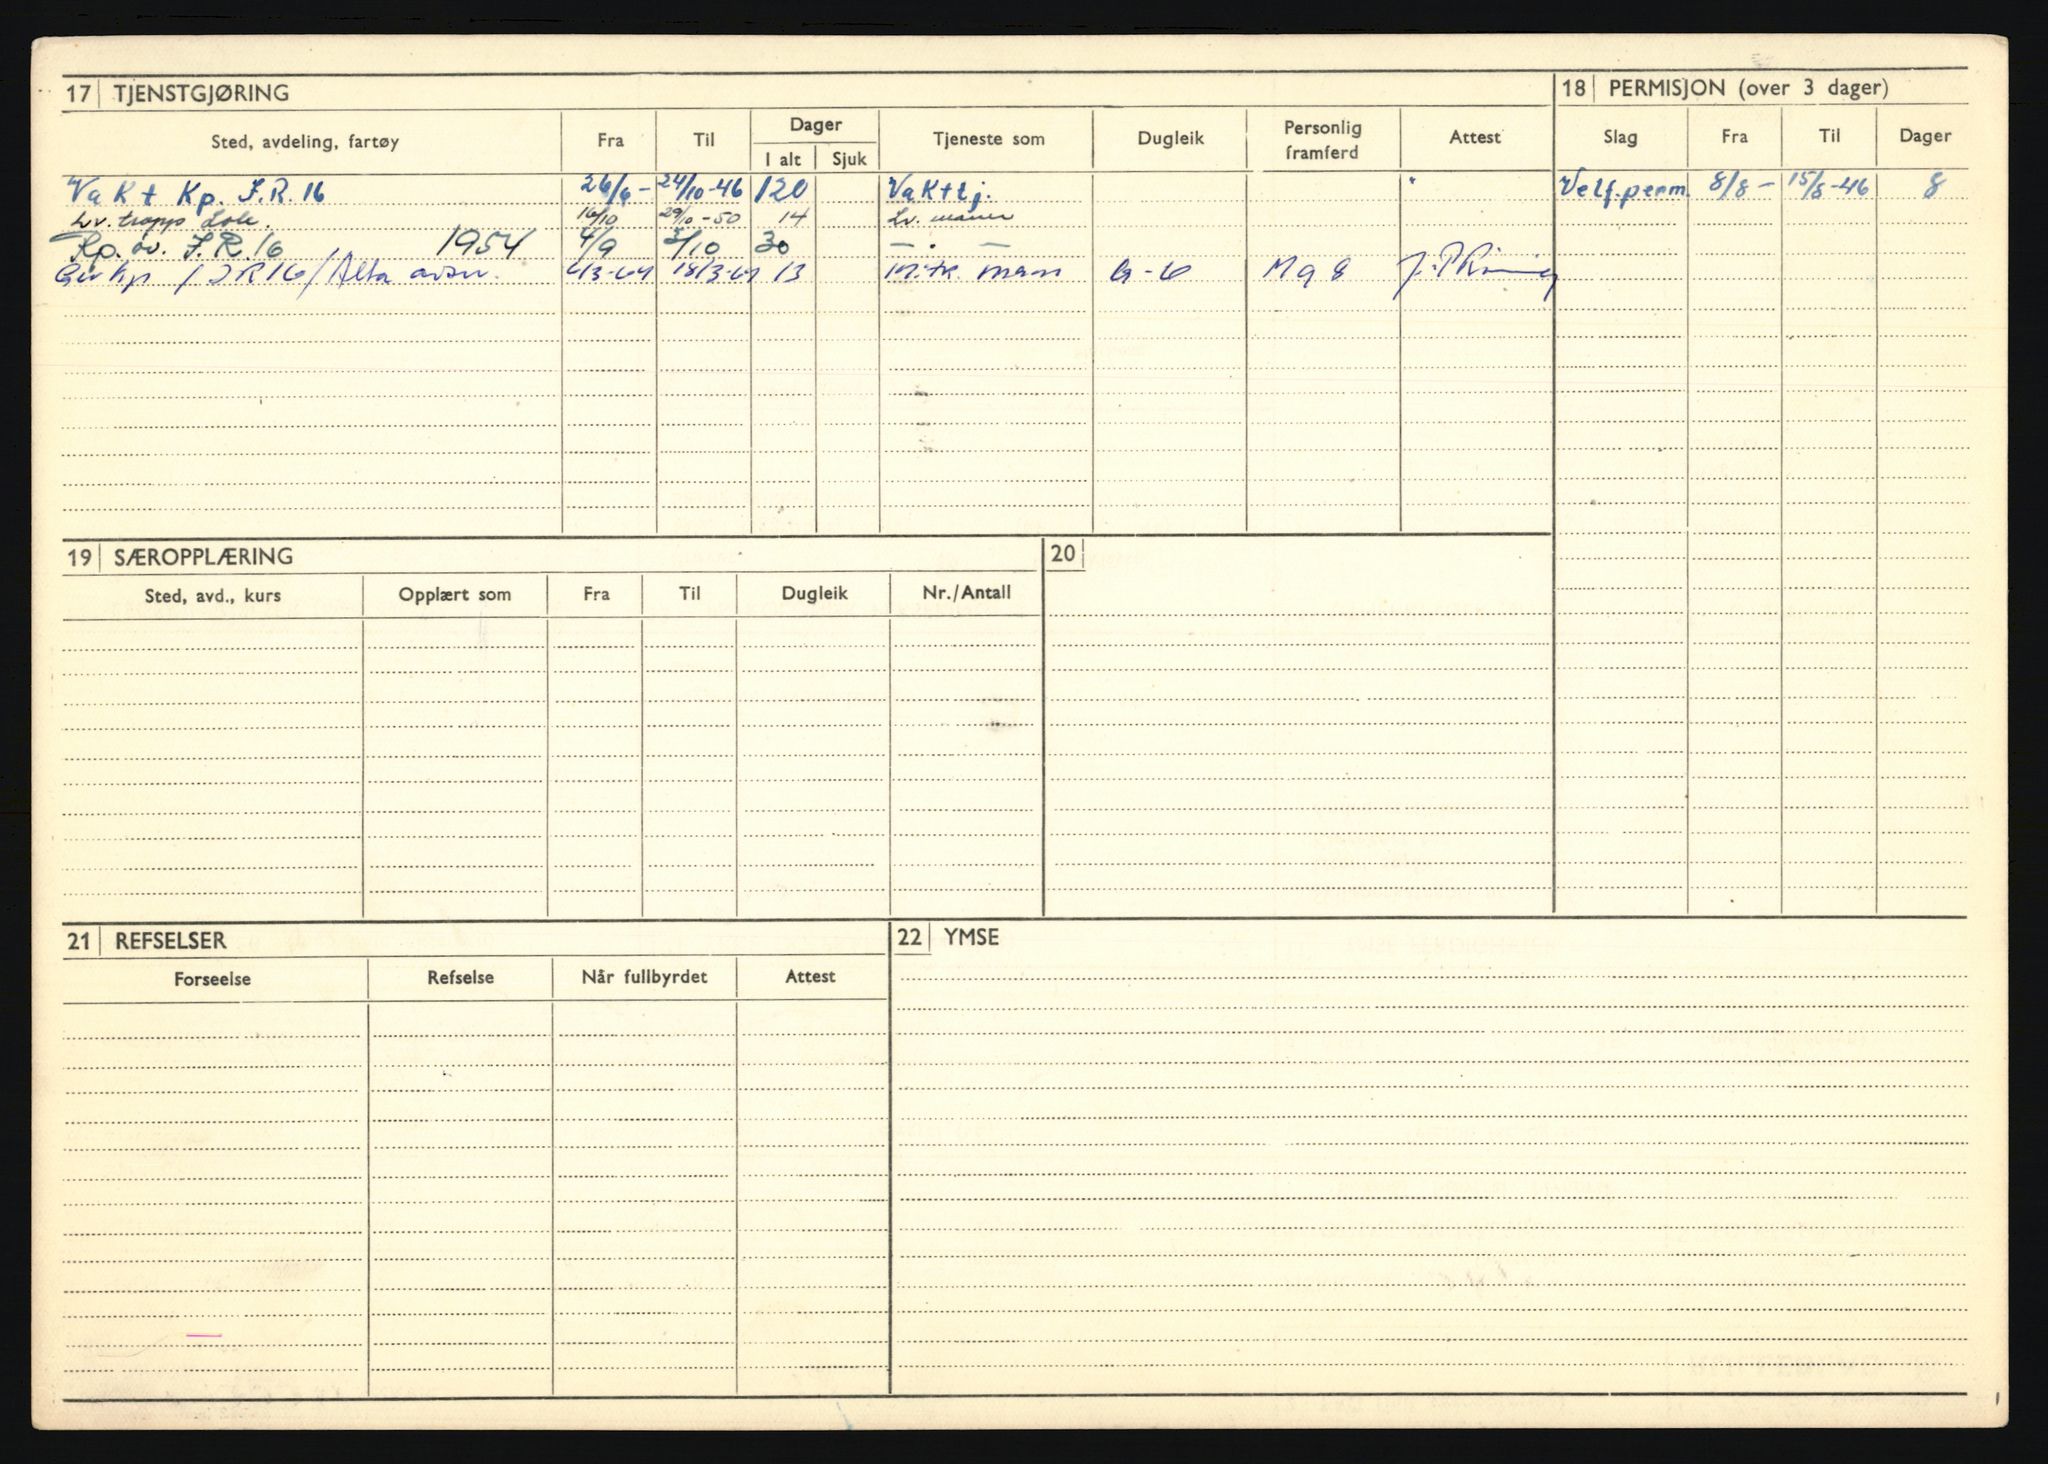 17 TJENSTGJØRING
18 PERMISJON (over 3 dager)
Sted, avdeling, fartøy Fra Til Dager I alt Sjuk Tjeneste som Dugleik Personlig framferd Attest
Slag Fra Til Dager
Vakt Kp. I.R. 16 26/6 - 24/10-46 120 Vakttj.
Velf.perm. 8/8 - 15/8-46 8
Lv. tropp 16/10 29/10-50 14 Lv.
Rp. øv. I.R. 16 1954 4/9 3/10 30 — . —
/ I R 16 / Alta 4/3-64 18/3-64 13 G-6 M g 8
19 SÆROPPLÆRING
20
Sted, avd., kurs Opplært som Fra Til Dugleik Nr./Antall
21 REFSELSER
22 YMSE
Forseelse Refselse Når fullbyrdet Attest